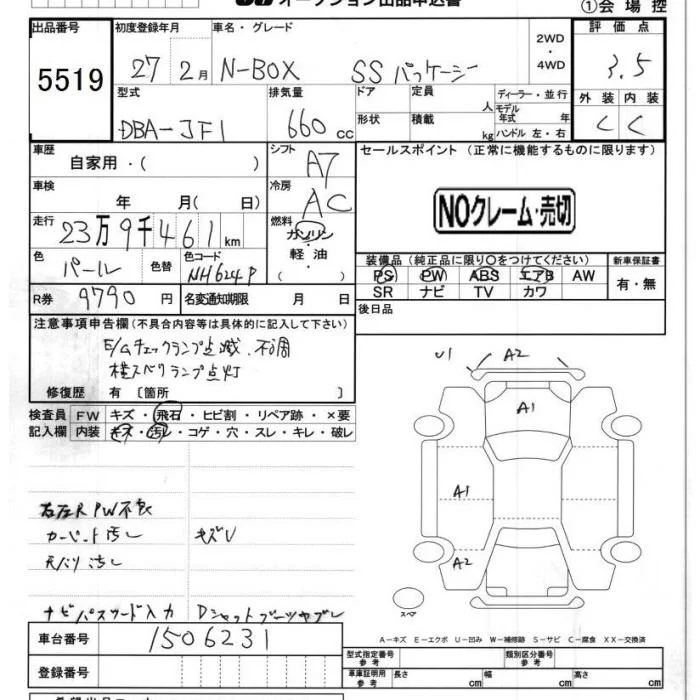 オークション出品申込書
①会場控
出品番号 初度登録年月 車名・グレード 2WD 評価点
5519 27 2月 N-BOX SSパッケージ ・4WD 3.5
型式 排気量 ドア 定員 人 ディーラー・並行 外装 内装
DBA-JF1 660cc 形状 積載 kg モデル年式 年 C C
ハンドル 左・右
車歴 シフト セールスポイント (正常に機能するものに限ります)
自家用・( ) A7
車検 冷房 NOクレーム・売切
年 月( 日) AC
走行 燃料
23万9千461km ガソリン
・軽油
( )
色 色替 色コード 装備品(純正品に限り○をつけてください) 新車保証書
パール NH624P PS PW ABS エアB AW 有・無
SR ナビ TV カワ
R券 9790円 名変通知期限 月 日 後日品
注意事項申告欄(不具合内容等は具体的に記入して下さい)
E/Gチェックランプ点滅、不調
横スベリランプ点灯
修復歴 有〔箇所 〕
U1 A2
A1
検査員 FW キズ・飛石・ヒビ割・リペア跡・×要
記入欄 内装 キズ・汚レ・コゲ・穴・スレ・キレ・破レ
A1
右左R PW不良
カーペット汚レ キズU
天バリ汚レ
A2
ナビパスワード入力 Dシャフトブーツヤブレ
スペア
車台番号 1506231
A-キズ E-エクボ U-凹み W-補修跡 S-サビ C-腐食 XX-交換済
型式指定番号 参考 類別区分番号 参考
登録番号 車庫証明用 参考 長さ cm 幅 cm 高さ cm